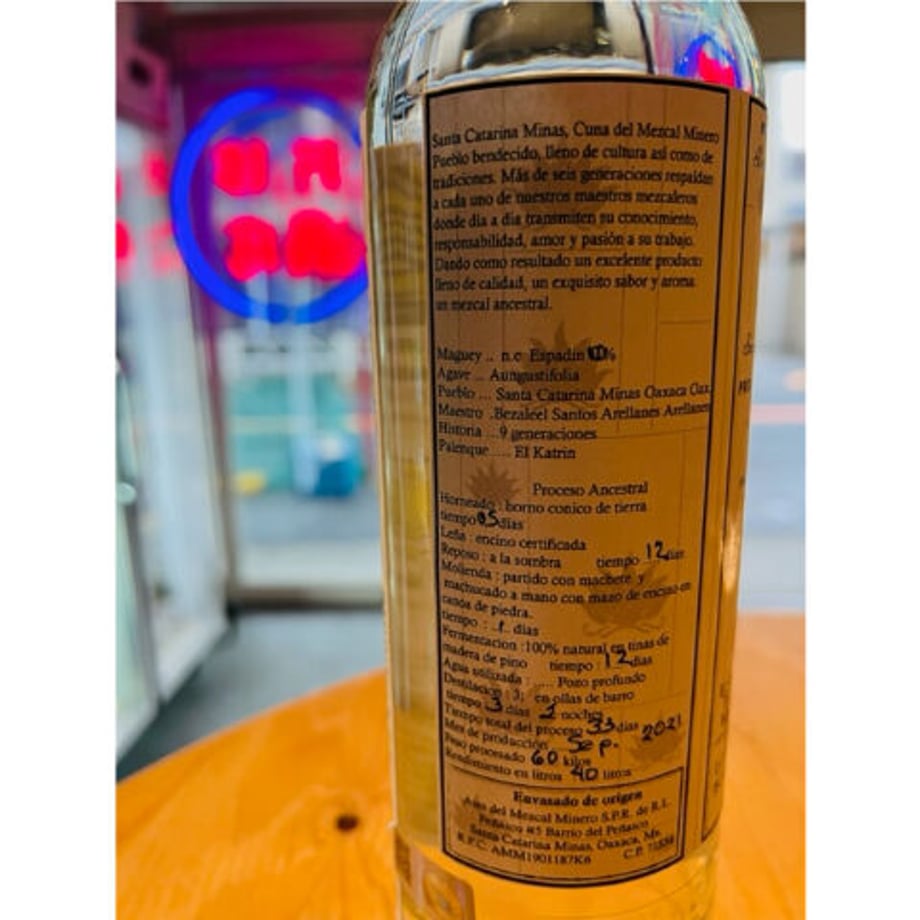 Santa Catarina Minas, Cuna del Mezcal Minero
Pueblo bendecido, lleno de cultura así como de
tradiciones. Más de seis generaciones respaldan
a cada uno de nuestros maestros mezcaleros
donde día a día transmiten su conocimiento,
responsabilidad, amor y pasión a su trabajo.
Dando como resultado un excelente producto
lleno de calidad, un exquisito sabor y aroma.
un mezcal ancestral.
Maguey .. n.c Espadin %
Agave ... Aungustifolia
Pueblo ... Santa Catarina Minas Oaxaca Oax.
Maestro .Bezaleel Santos Arellanes Arellanes
Historia ...9 generaciones
Palenque .... El Katrin
Proceso Ancestral
Horneado : horno conico de tierra
tiempo 05 días
Leña : encino certificada
Reposo : a la sombra tiempo 12 días
Molienda : partido con machete y
machucado a mano con mazo de encino en
canoa de piedra.
tiempo : 1 días
Fermentacion :100% natural en tinas de
madera de pino tiempo : 12 días
Agua utilizada : ..... Pozo profundo
Destilacion : 3; en ollas de barro
tiempo 3 días 2 noches
Tiempo total del proceso 33 días
Mes de producción Sep. 2021
Peso procesado 60 kilos
Rendimiento en litros 40 litros
Envasado de origen
del Mezcal Minero S.P.R. de R.L.
Peñasco #5 Barrio del Peñasco
Santa Catarina Minas, Oaxaca, Mx.
R.F.C. AMM1901187K6 C.P.